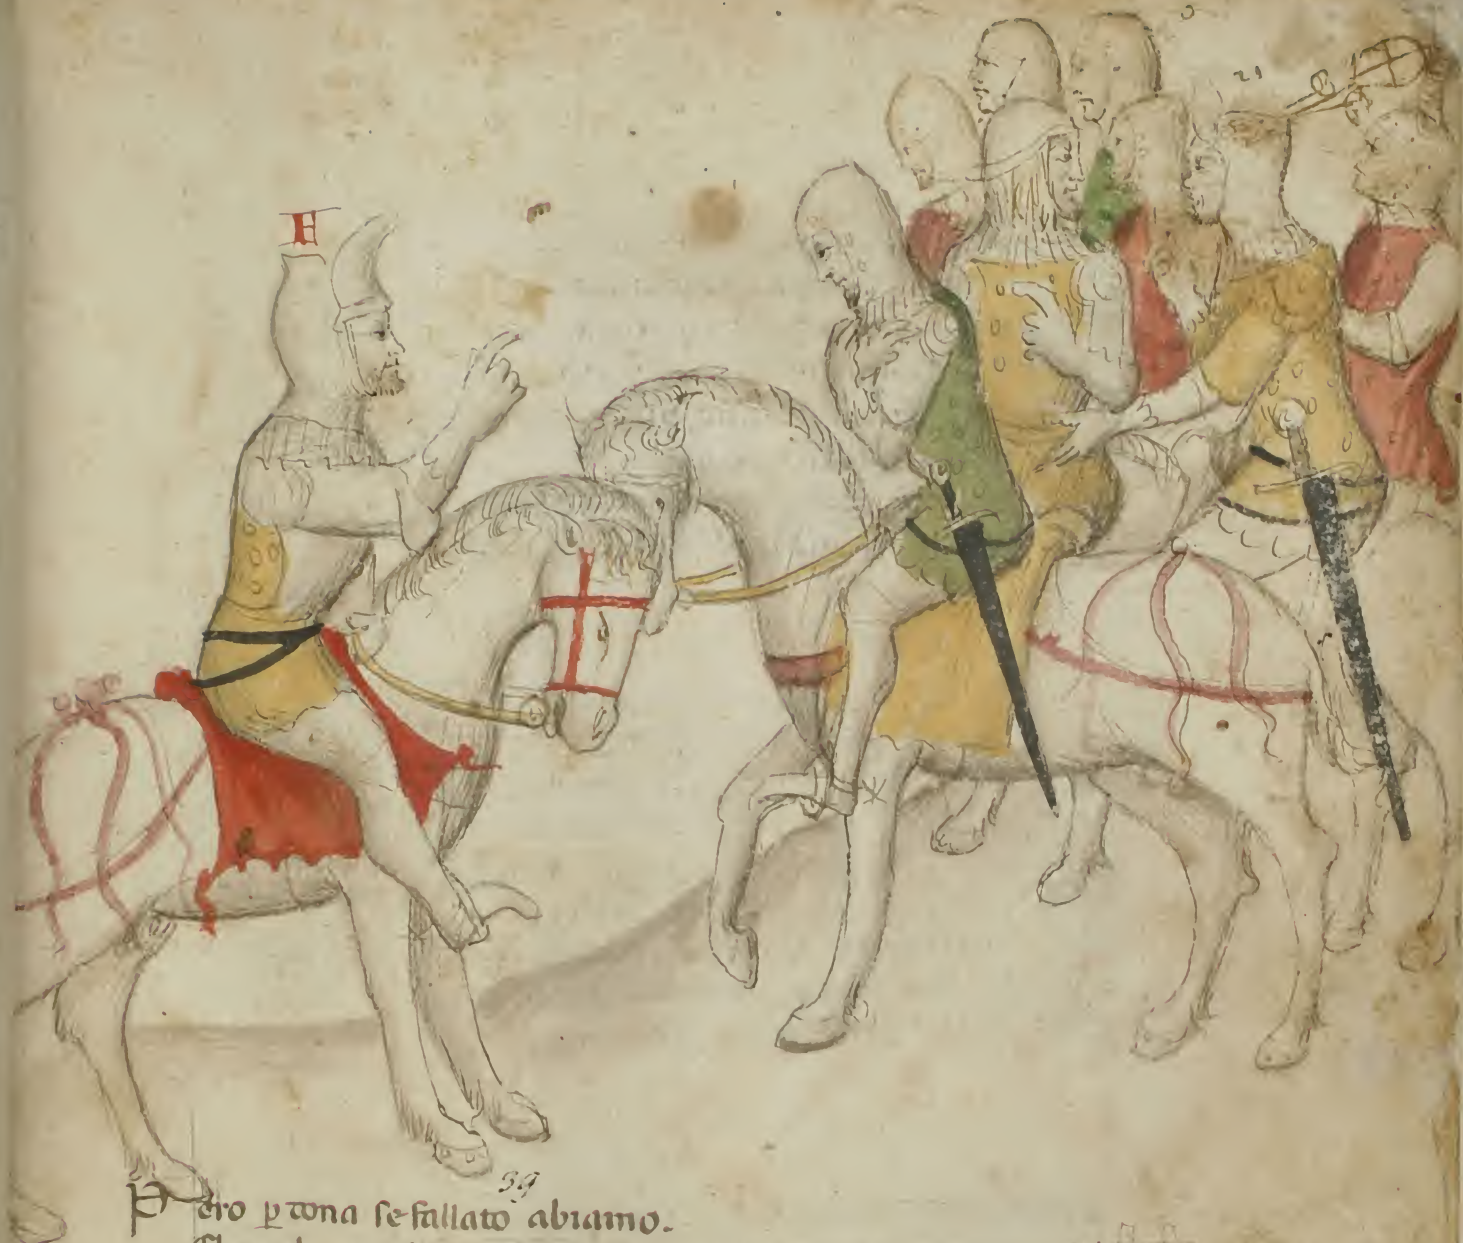 E
21
39
Pero ꝑdona se fallato abiamo.